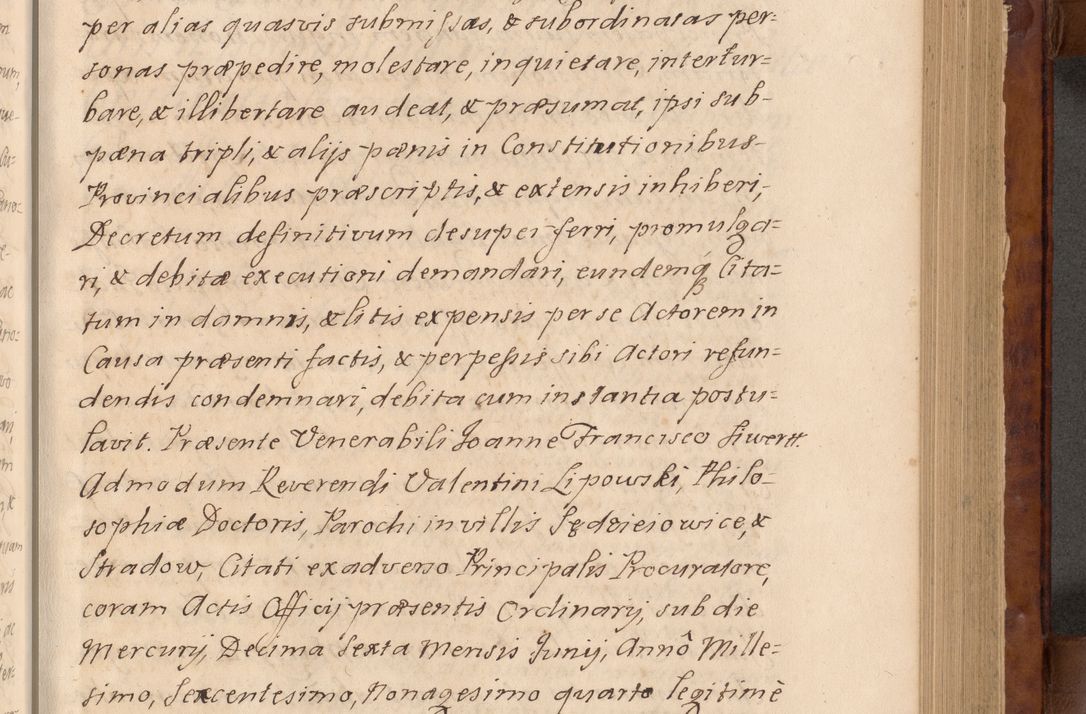 per alias quasvis submissas, & subordinatas per=
sonas præpedire, molestare, inquietare, intertur=
bare, & illibertare audeat, & præsumat, ipsi sub-
pæna tripli, & alijs pænis in Constitutionibus-
Provincialibus præscriptis, & extensis inhiberi,
Decretum definitivum desuper ferri, promulga=
ri, & debitæ executioni demandari, eundemq Cita=
tum in damnis, & litis expensis per se Actorem in
Causa præsenti factis, & perpessis sibi Actori refun=
dendis condemnari, debita cum instantia postu=
lavit. Præsente Venerabili Joanne Francisco Siwertt.
Admodum Reverendi Valentini Lipowski, Philo-
sophiæ Doctoris, Parochi in villis Sędzieiowice, &
Stradow, Citati ex adverso Principalis Procuratore,
coram Actis Officij præsentis Ordinarij, sub die
Mercurij, Decima Sexta Mensis Junij, Annô Mille=
simo, Sexcentesimo, Nonagesimo quarto legitimè